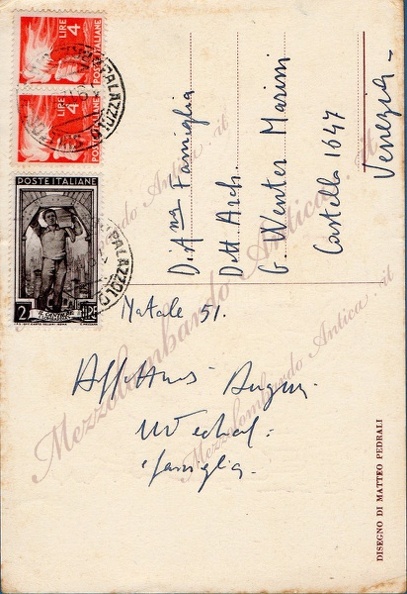 LIRE 4
POSTE ITALIANE
LIRE 4
POSTE ITALIANE
PALAZZOLO
POSTE ITALIANE
2 LIRE
PALAZZOLO
D.ma Famiglia
Dott Arch.
G. Wenter Marini
Castello 1647
Venezia -
Natale 51.
Affettuosi Auguri
famiglia.
DISEGNO DI MATTEO PEDRALI
Mezzolombardo Antica.it
Mezzolombardo Antica.it